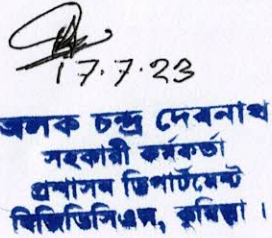 17.7.23
অলক চন্দ্র দেবনাথ
সহকারী কর্মকর্তা
প্রশাসন ডিপার্টমেন্ট
বিজিডিসিএল, কুমিল্লা।